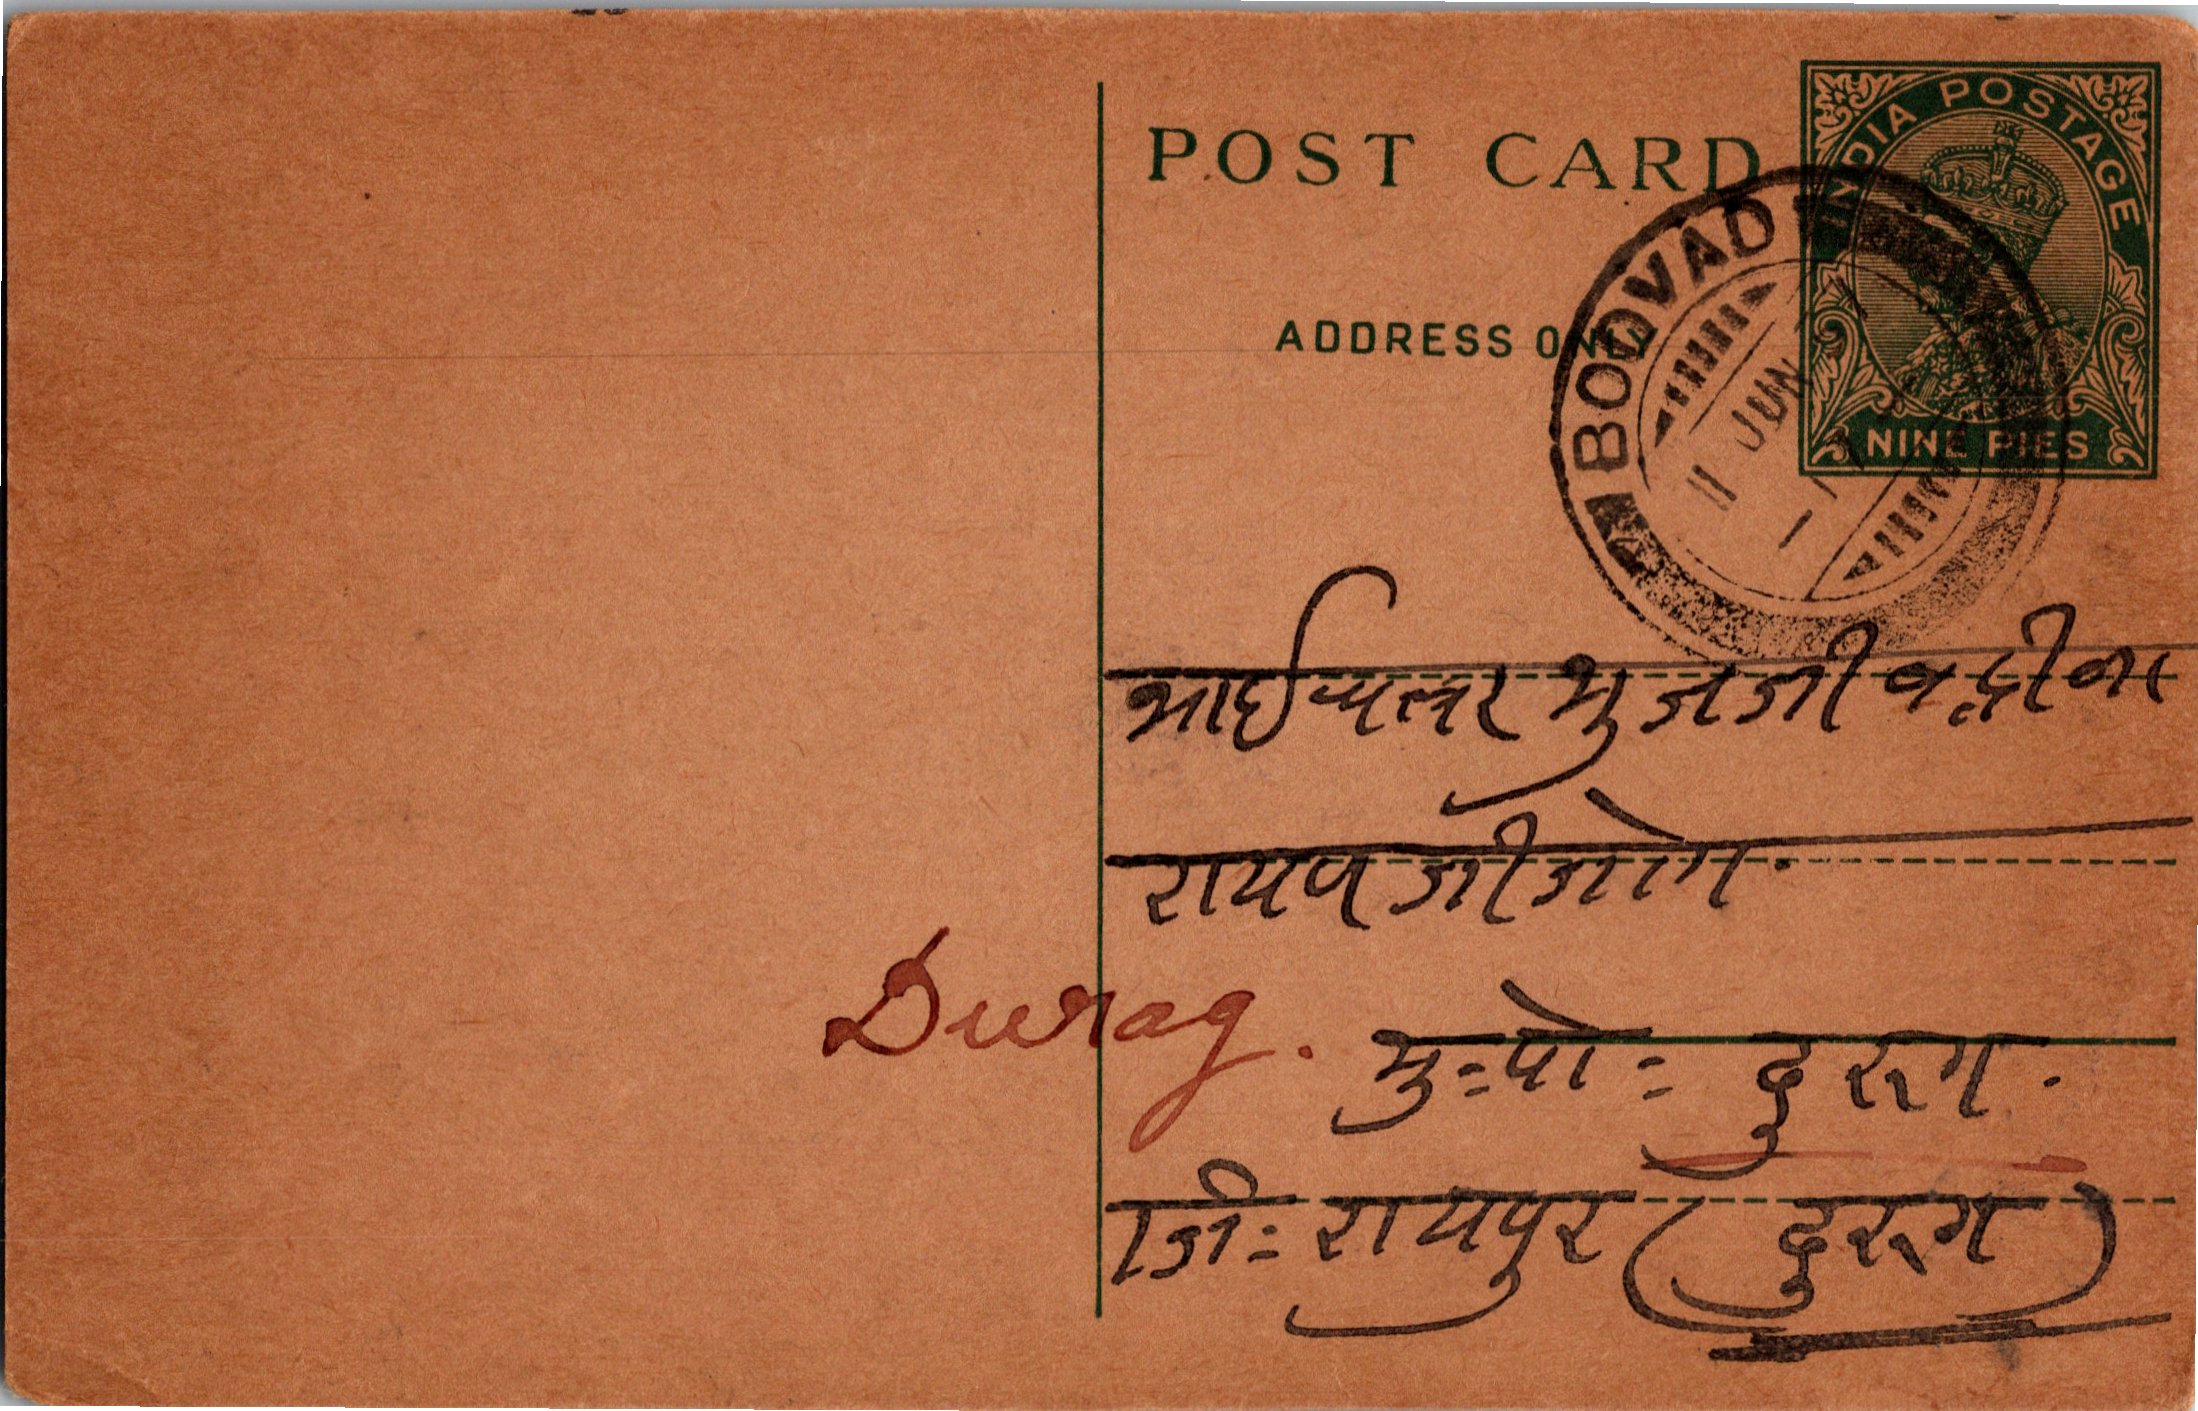 POST CARD
INDIA POSTAGE
NINE PIES
ADDRESS ONLY
BODVAD
11 JUN
भाई चत्तर भुजजी बद्रीना
रायणजी जोग.
Durag.
मु:=पो:= दुरूग.
जि:= रायपुर (दुरूग)